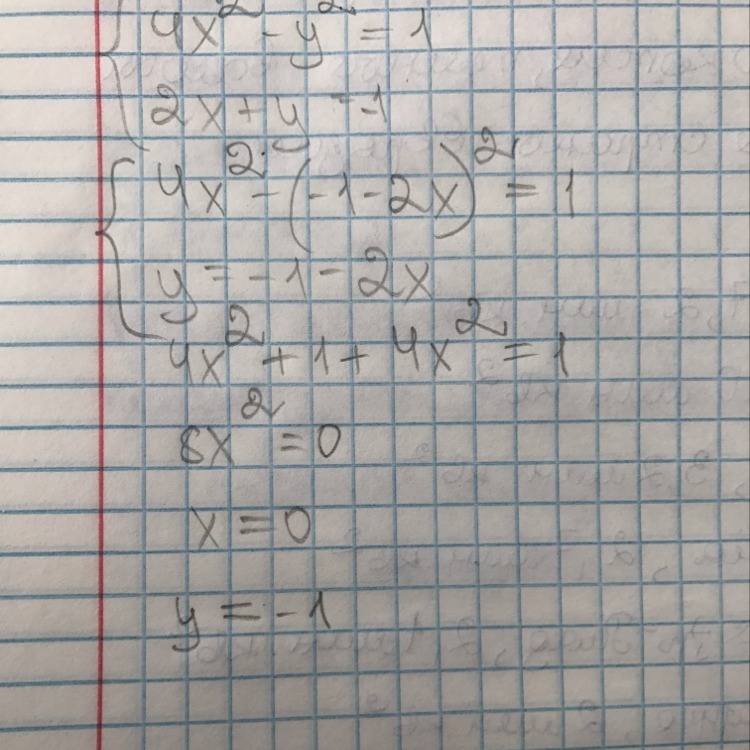 4x² - y² = 1
2x + y = -1
4x² - (-1 - 2x)² = 1
y = -1 - 2x
4x² + 1 + 4x² = 1
8x² = 0
x = 0
y = -1